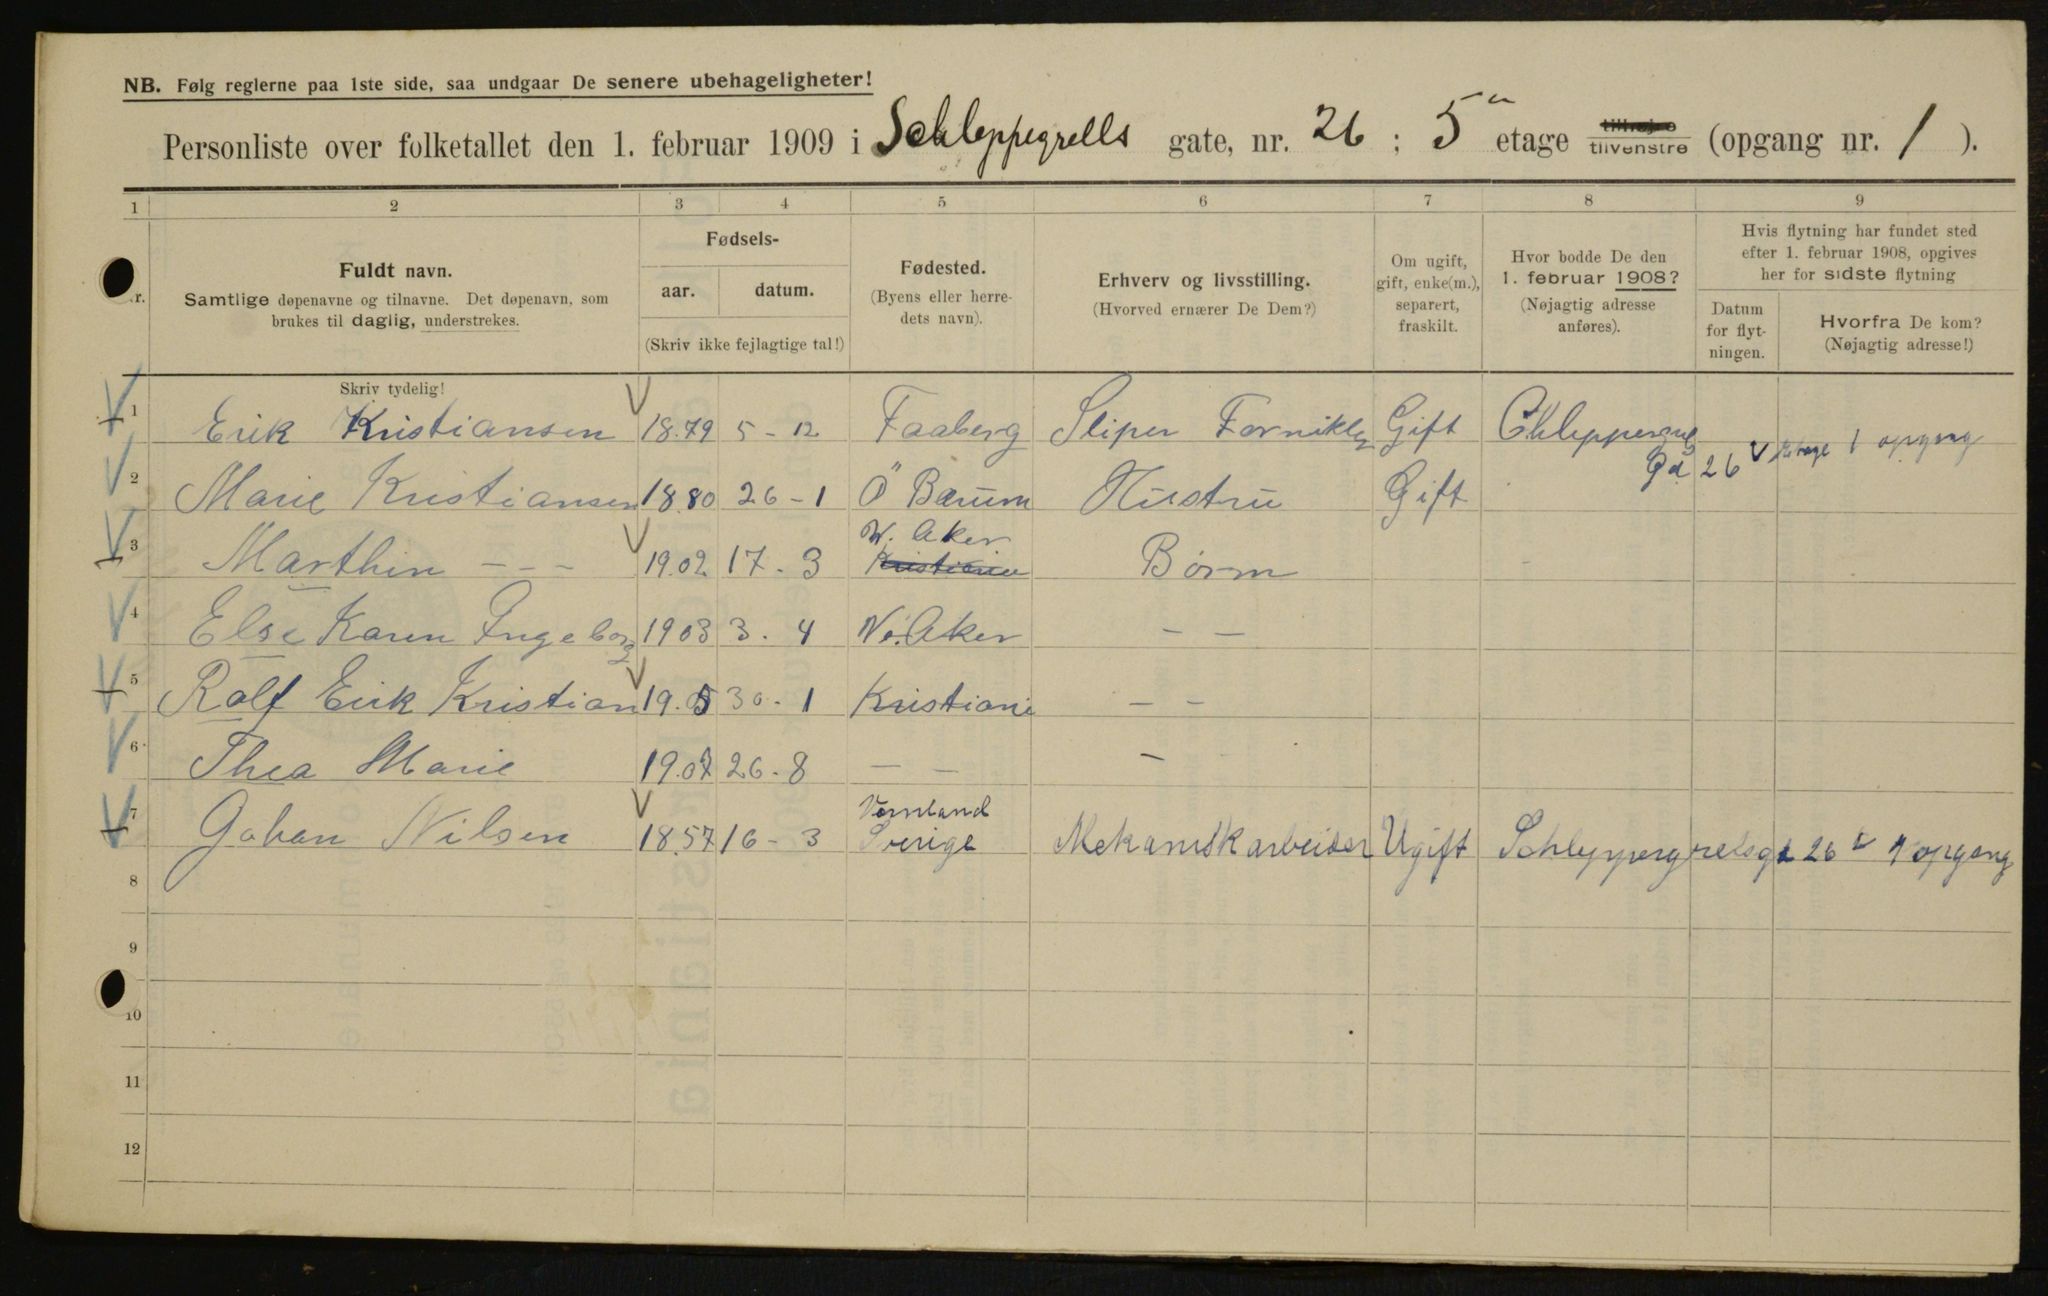 NB. Følg reglerne paa 1ste side, saa undgaar De senere ubehageligheter!
Personliste over folketallet den 1. februar 1909 i Schleppegrells gate, nr. 26 ; 5 etage tilhøire tilvenstre (opgang nr. 1 ).
1 2 3 4 5 6 7 8 9
Fuldt navn.
Samtlige døpenavne og tilnavne. Det døpenavn, som
brukes til daglig, understrekes.
Fødsels-
aar. datum.
(Skriv ikke fejlagtige tal!)
Fødested.
(Byens eller herre-
dets navn).
Erhverv og livsstilling.
(Hvorved ernærer De Dem?)
Om ugift,
gift, enke(m.),
separert,
fraskilt.
Hvor bodde De den
1. februar 1908?
(Nøjagtig adresse
anføres).
Hvis flytning har fundet sted
efter 1. februar 1908, opgives
her for sidste flytning
Datum
for flyt-
ningen.
Hvorfra De kom?
(Nøjagtig adresse!)
Skriv tydelig!
1 Erik Kristiansen 18.79 5 - 12 Faaberg Sliper Gift
26 1 opgang
2 Marie Kristiansen 18.80 26 - 1 Ö Bærum Hustru Gift
W. Aker
3 Marthin - - - 19.02 17 - 3 Kristiania Børn
4 Else Karen Ingeborg 1903 3 - 4 V. Aker — —
5 Rolf Erik Kristian 19.05 30 - 1 Kristiani — —
6 Thea Marie 19.07 26 - 8 — — —
Vermland
7 Johan Nilsen 18.57 16 - 3 Sverige Mekanisk arbeider Ugift Schleppergrelsgt 26 1 opgang
8
9
10
11
12